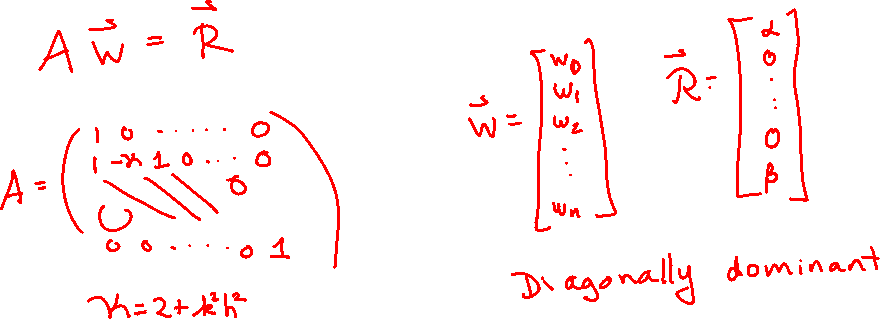 A w⃗ = R⃗
A = ( 1 0 ⋯⋯ 0
1 -κ 1 0 ⋯ 0
0
0
0 0 ⋯⋯ 0 1 )
κ = 2 + k²h²
w⃗ = [ w₀
w₁
w₂
⋮
wₙ ]
R⃗ = [ α
0
⋮
0
β ]
Diagonally dominant